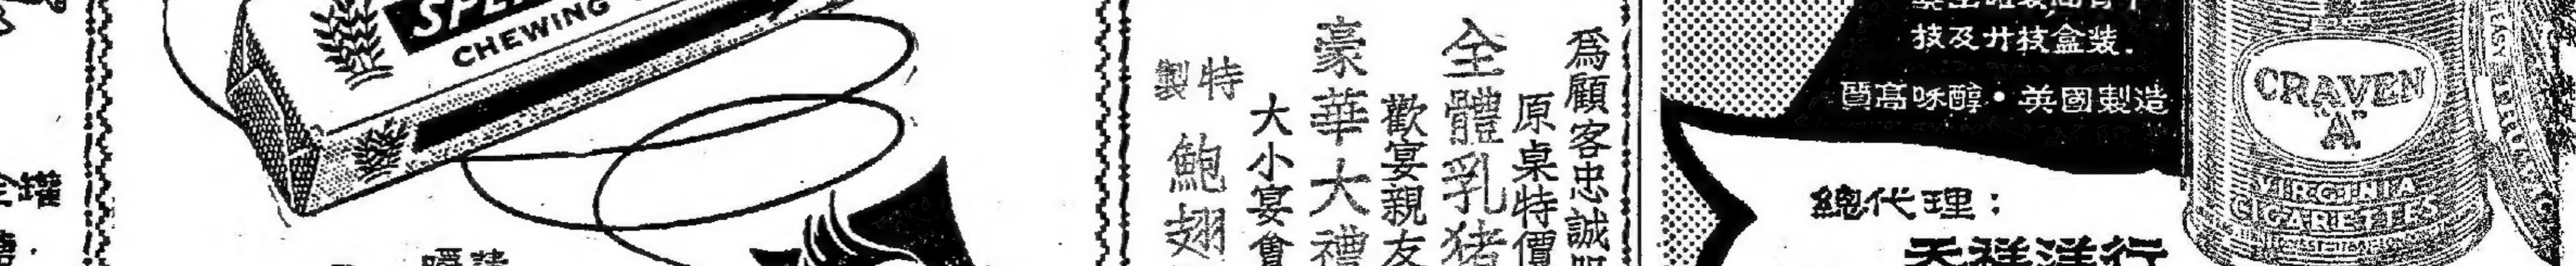 CHEWING
全體乳猪
原桌特價
為顧客忠誠
歡宴親友
豪華大禮
大小宴會
特製
鮑翅
技及廿技盒装.
質高味醇・英國製造
總代理：
天祥洋行
CRAVEN
"A"
VIRGINIA
CIGARETTES